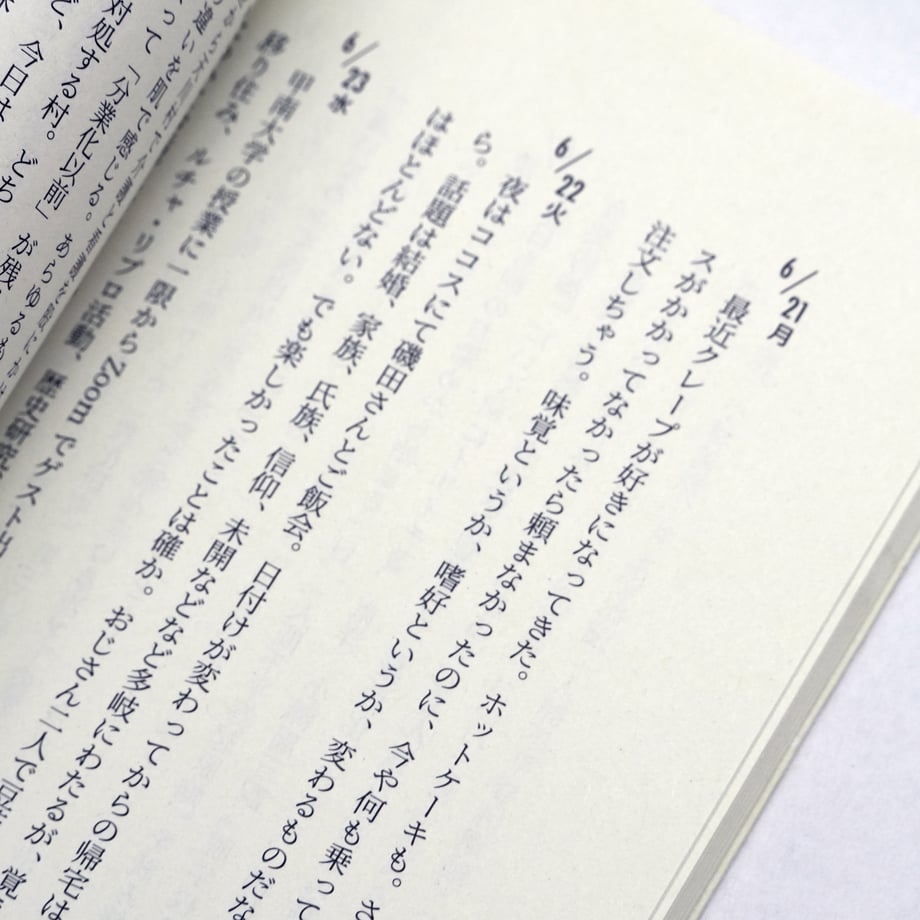 6/21月
最近クレープが好きになってきた。ホットケーキも。さ
スがかかってなかったら頼まなかったのに、今や何も乗って
注文しちゃう。味覚というか、嗜好というか、変わるものだな
6/22火
夜はココスにて磯田さんとご飯会。日付けが変わってからの帰宅は
ら。話題は結婚、家族、氏族、信仰、未開などなど多岐にわたるが、覚
はほとんどない。でも楽しかったことは確か。おじさん二人で
6/23水
甲南大学の授業に一限からZoomでゲスト出
移り住み、ルチャ・リブロ活動、歴史研究
違いを肌で感じる。あらゆるもの
って「分業化以前」が残
対処する村。どち
ど、今日は